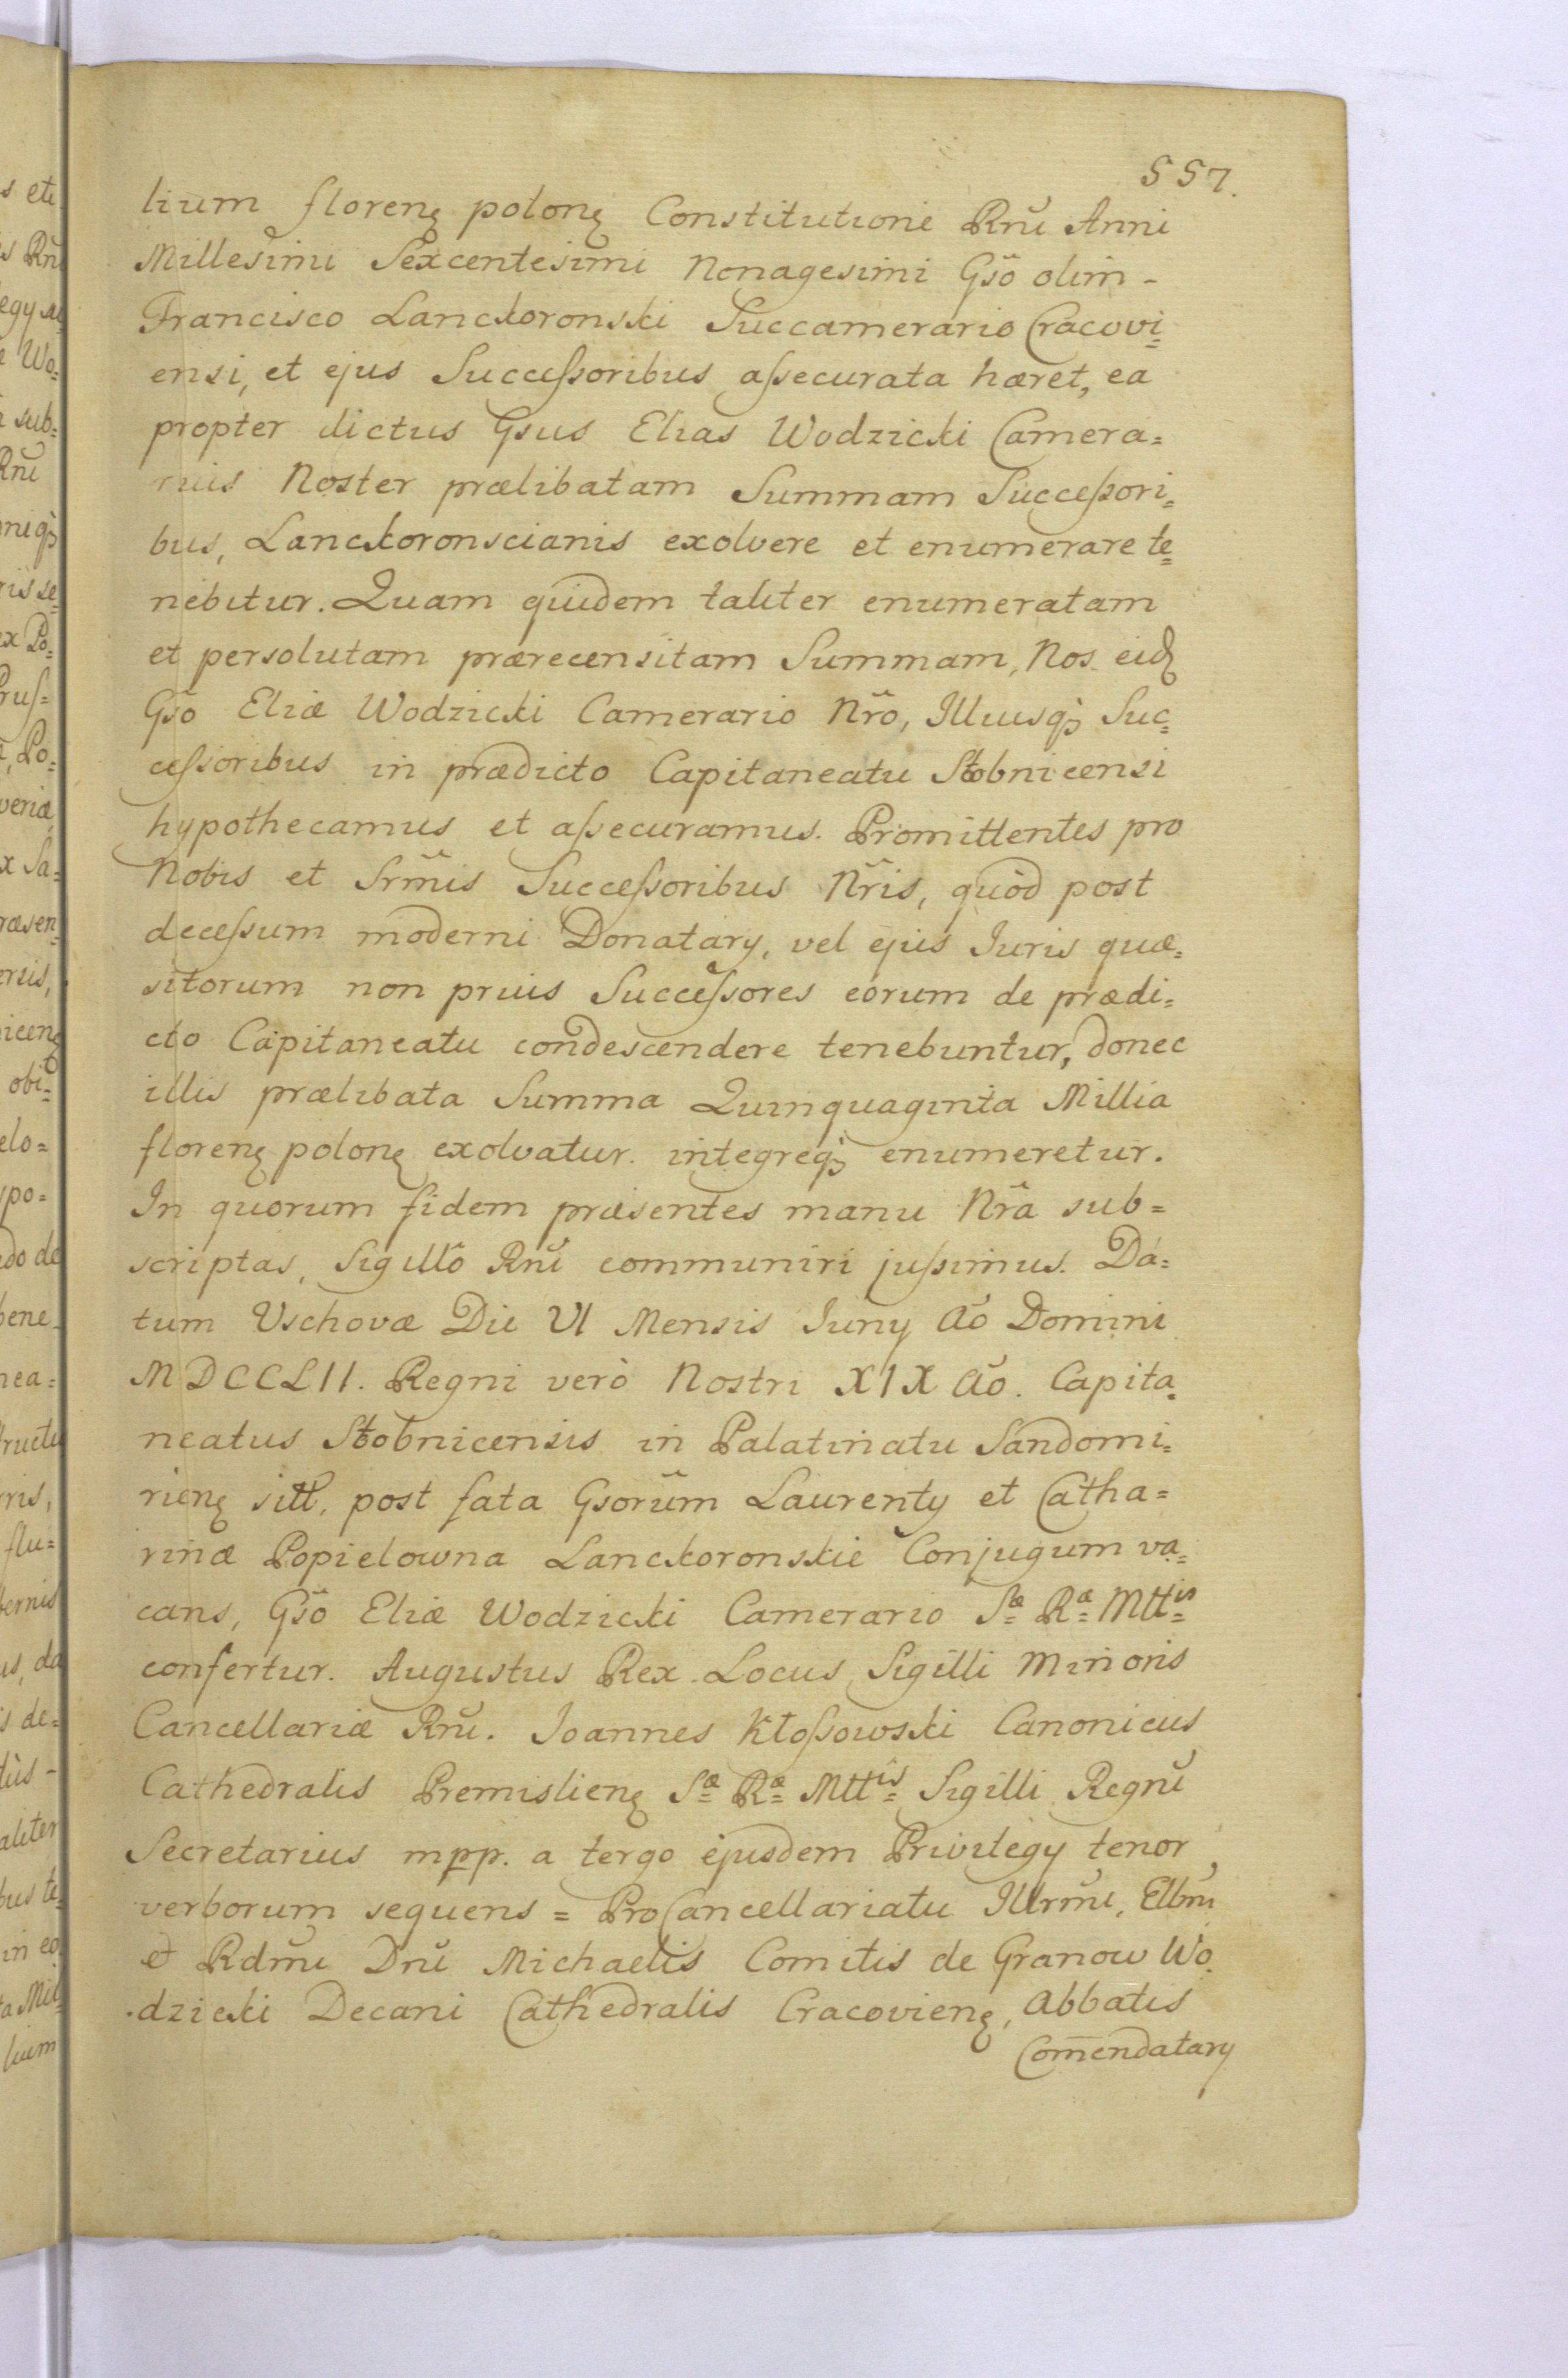 557.
lium florenȩ polonȩ Constitutione Rnĩ Anni
Millesimi Sexcentesimi Nonagesimi Gsõ olim -
Francisco Lanckoronski Succamerario Cracovi=
ensi, et ejus Succeſsoribus aſsecurata hæret, ea
propter dictus Gsus Elias Wodzicki Camera=
rius Noster prælibatam Summam Succeſsori=
bus, Lanckoronscianis exolvere et enumerare te=
nebitur. Quam quidem taliter enumeratam
et persolutam prærecensitam Summam, Nos eidȩ
Gsõ Eliæ Wodzicki Camerario Nrõ, Illiusq; Suc=
ceſsoribus in prædicto Capitaneatu Stobnicensi
hypothecamus et aſsecuramus. Promittentes pro
Nobis et Srm̃is Succeſsoribus Nr̃is, quòd post
deceſsum moderni Donatarÿ, vel ejus Iuris quæ=
sitorum non prius Succeſsores eorum de prædi=
cto Capitaneatu condescendere tenebuntur, donec
illis prælibata Summa Quinquaginta Millia
florenȩ polonȩ exolvatur integreq; enumeretur.
In quorum fidem præsentes manu Nr̃a sub=
scriptas, Sigillô Rnĩ communiri juſsimus. Da=
tum Vschovæ Die VI Mensis Iunÿ Aõ Domini
MDCCLII. Regni verò Nostri XIX Aõ. Capita=
neatus Stobnicensis in Palatinatu Sandomi=
rienȩ sitt, post fata Gsorũm Laurentÿ et Catha=
rinæ Popielowna Lanckoronskie Conjugum va=
cans, Gsõ Eliæ Wodzicki Camerario Sæ= Ræ= Mttis=
confertur. Augustus Rex. Locus Sigilli Minoris
Cancellariæ Rnĩ. Ioannes Kłoſsowski Canonicus
Cathedralis Premislienȩ Sæ= Ræ= Mttis= Sigilli Regnĩ
Secretarius mpp. a tergo ejusdem Privilegÿ tenor
verborum sequens = ProCancellariatu Illrm̃i, Ellm̃i
et Rdm̃i Dnĩ Michaelis Comitis de Granow Wo=
dzicki Decani Cathedralis Cracovienȩ, Abbatis
Com̃endatarÿ